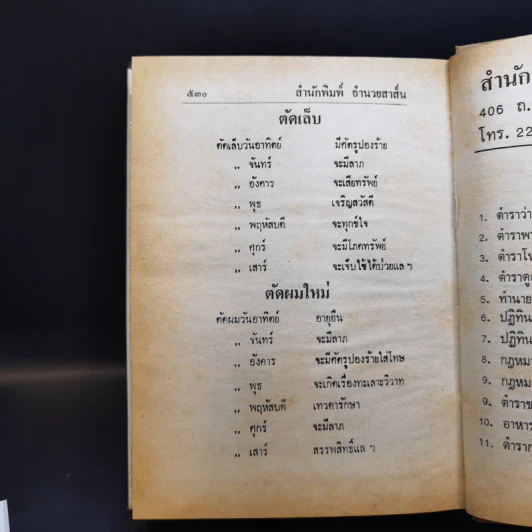 ๕๓๐ สำนักพิมพ์ อำนวยสาส์น
ตัดเล็บ
ตัดเล็บวันอาทิตย์ มีศัตรูปองร้าย
,, จันทร์ จะมีลาภ
,, อังคาร จะเสียทรัพย์
,, พุธ เจริญสวัสดี
,, พฤหัสบดี จะทุกข์ใจ
,, ศุกร์ จะมีโภคทรัพย์
,, เสาร์ จะเจ็บไข้ได้ป่วยแล ฯ
ตัดผมใหม่
ตัดผมวันอาทิตย์ อายุยืน
,, จันทร์ จะมีลาภ
,, อังคาร จะมีศัตรูปองร้ายใส่โทษ
,, พุธ จะเกิดเรื่องทะเลาะวิวาท
,, พฤหัสบดี เทวดารักษา
,, ศุกร์ จะมีลาภ
,, เสาร์ สรรพสิทธิ์แล ฯ
สำนัก
406 ถ.
โทร. 22
1. ตำราว่า
2. ตำราพ
3. ตำราโ
4. ตำราดู
5. ทำนาย
6. ปฏิทิน
7. ปฏิทิน
8. กฎหม
9. กฎหม
9. ตำรา
10. อาหาร
11. ตำรา